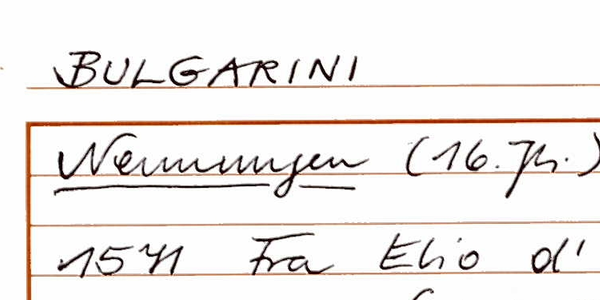 BULGARINI
Nennungen (16. Jh.)
1571 Fra Elio d'